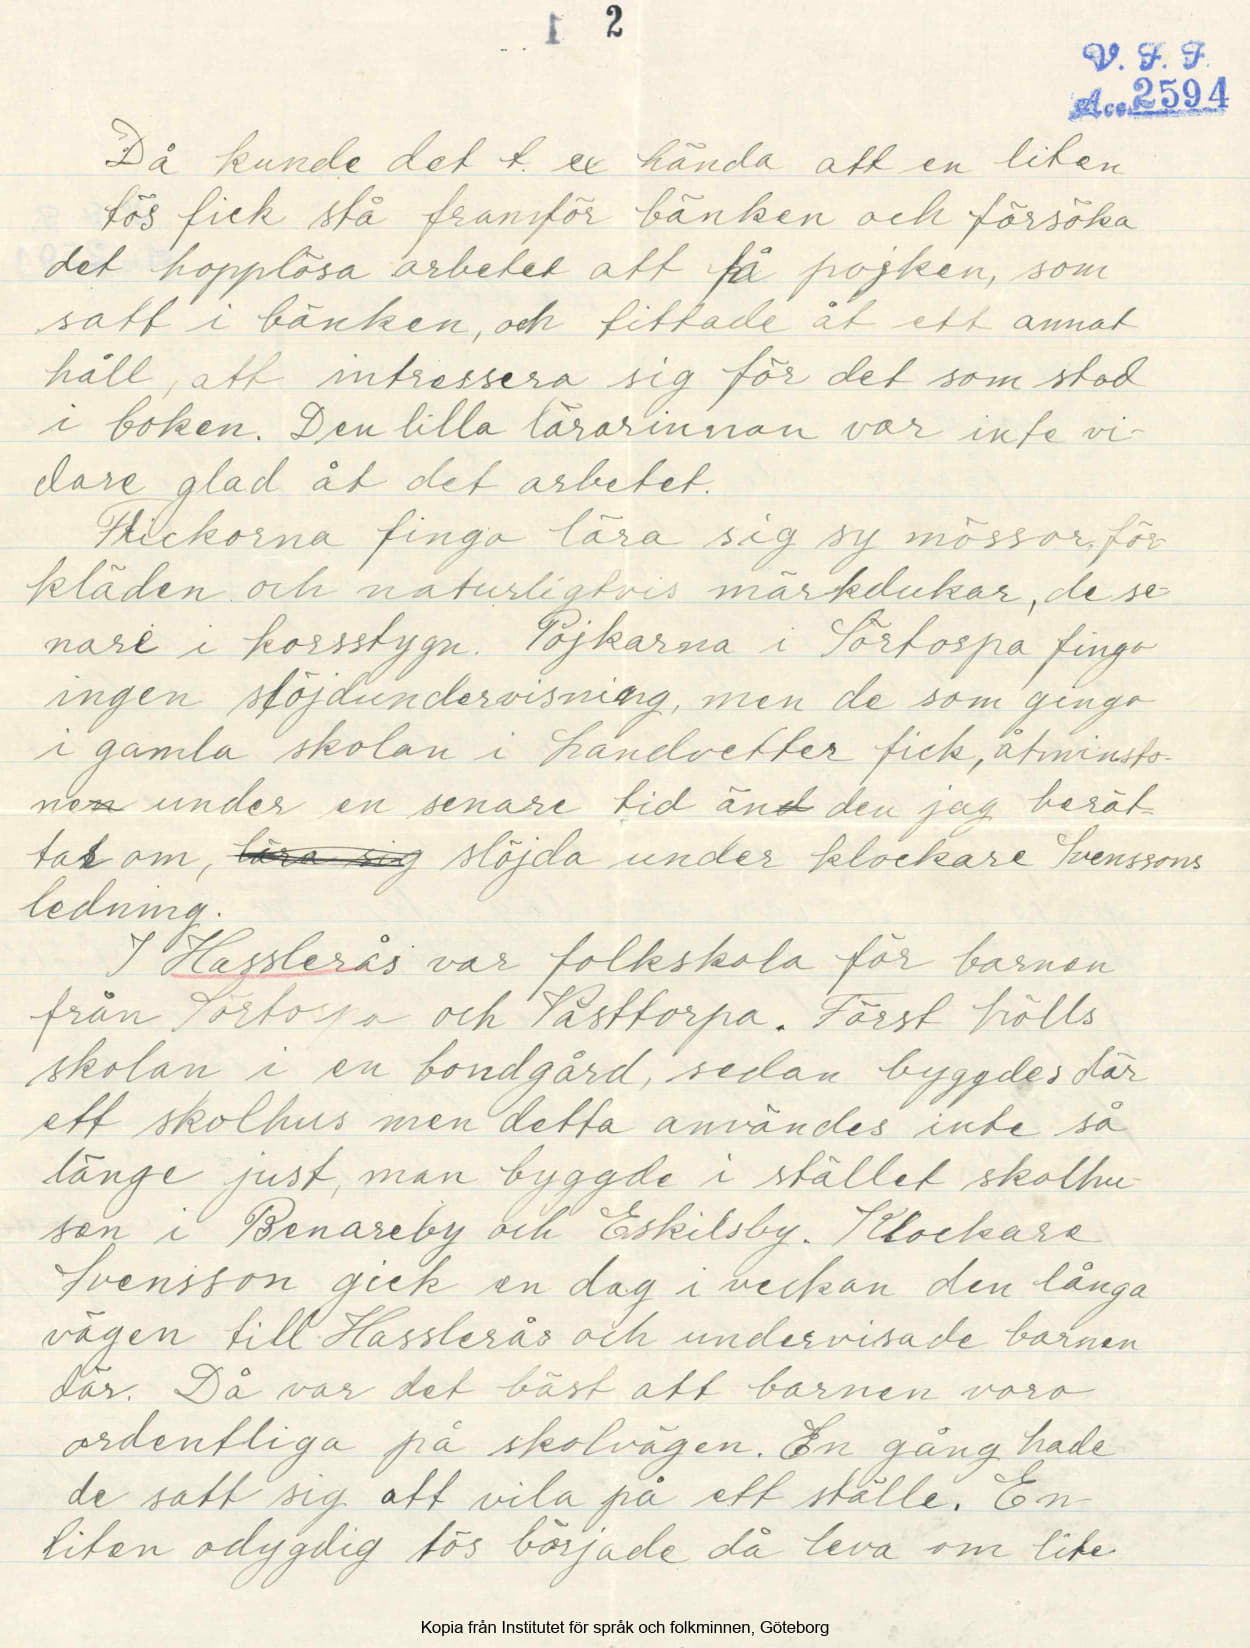 1 2
V. F. F.
Acc. 2594
Då kunde det t. ex hända att en liten
tös fick stå framför bänken och försöka
det hopplösa arbetet att få pojken, som
satt i bänken, och tittade åt ett annat
håll, att intressera sig för det som stod
i boken. Den lilla lärarinnan var inte vi-
dare glad åt det arbetet.
Flickorna fingo lära sig sy mössor, för-
kläden och naturligtvis märkdukar, de se-
nare i korsstygn. Pojkarna i Sörtorpa fingo
ingen slöjdundervisning, men de som gingo
i gamla skolan i Landvetter fick, åtminsto-
nen under en senare tid änd den jag berät-
tar om, lära sig slöjda under klockare Svenssons
ledning.
I Hasslerås var folkskola för barnen
från Sörtorpa och Västtorpa. Först hölls
skolan i en bondgård, sedan byggdes där
ett skolhus men detta användes inte så
länge just, man byggde i stället skolhu-
sen i Benareby och Eskilsby. Klockare
Svensson gick en dag i veckan den långa
vägen till Hasslerås och undervisade barnen
där. Då var det bäst att barnen voro
ordentliga på skolvägen. En gång hade
de satt sig att vila på ett ställe. En
liten odygdig tös började då leva om lite
Kopia från Institutet för språk och folkminnen, Göteborg